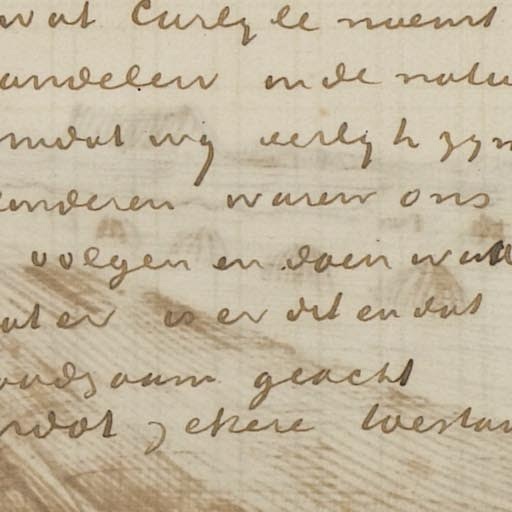 wat Carlyle noemt
andelen in de natu
mdat wij eerlijk zyn
inderen waren ons
volgen en doen wat
at er is er dit en dat
oodzaam geacht
rdat zekere toestan